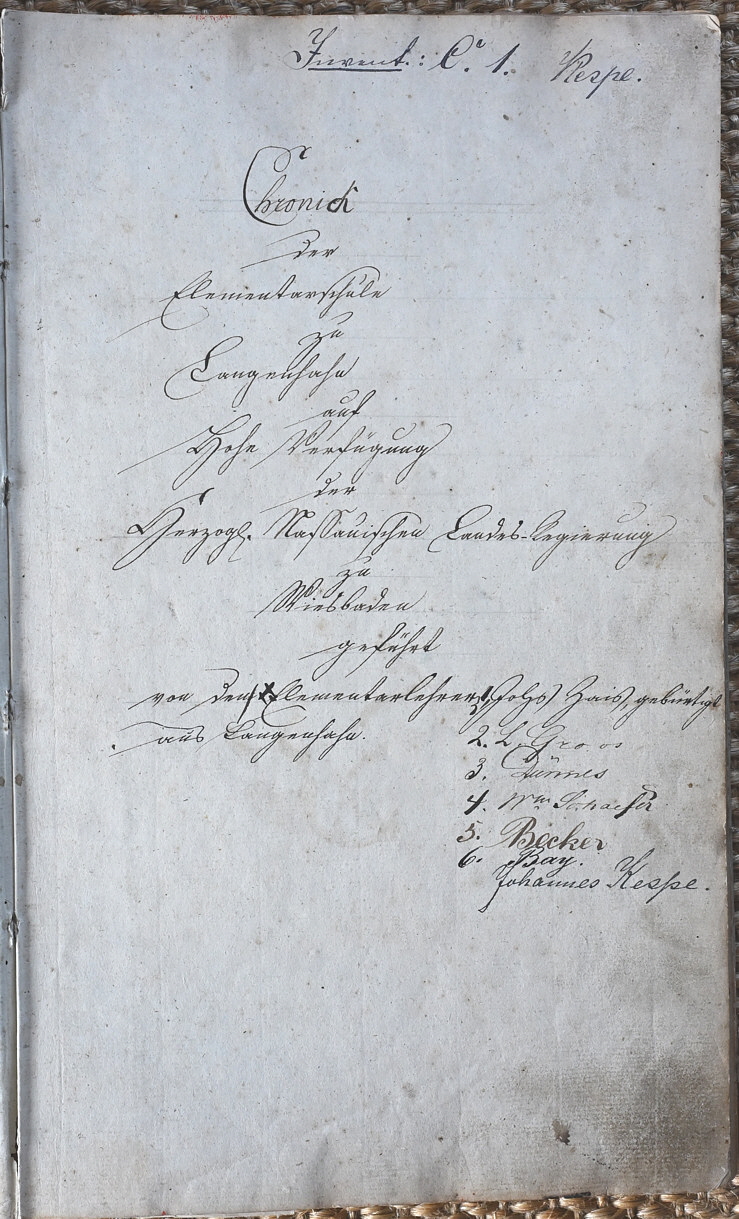 Invent.: C. 1. Kespe.
Chronick
der
Elementarschule
zu
Langenhahn
auf
Hohe Verfügung
der
Herzogl. Nassauischen Landes-Regierung
zu
Wiesbaden
geführt
von den Elementarlehrern 1, Johs Hais, gebürtigt
aus Langenhahn.
2. L. Groos
3. Dünnes
4. Wm Schaefer
5. Becker
6. Bay.
Johannes Kespe.